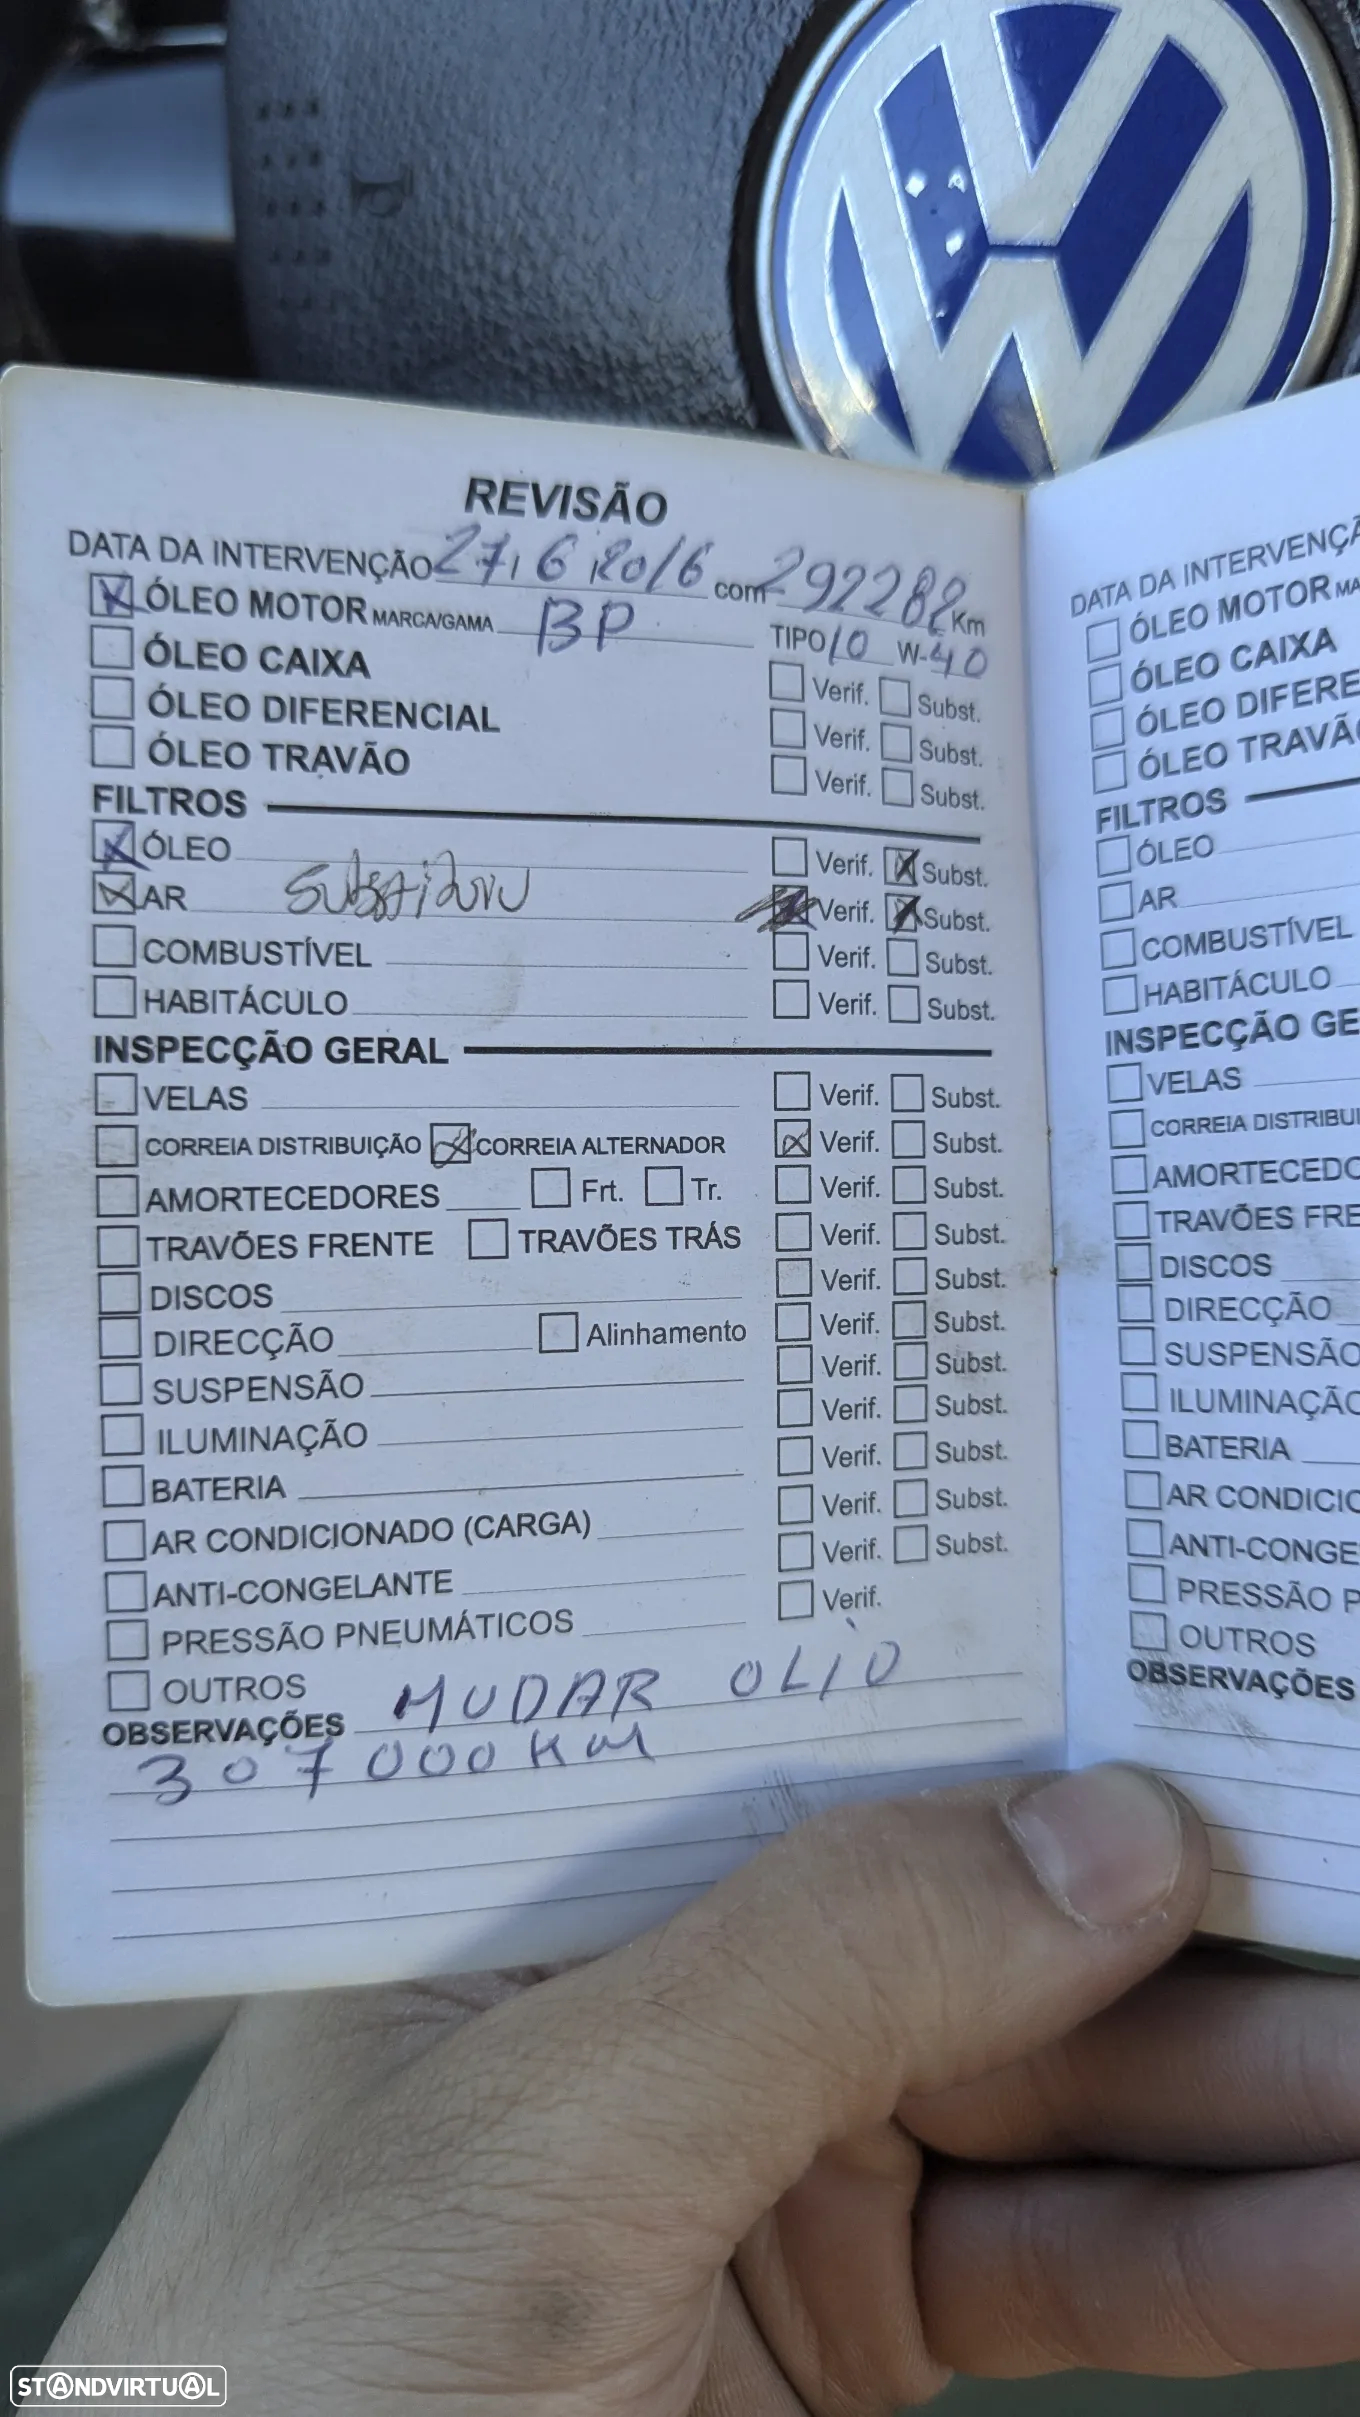 REVISÃO
DATA DA INTERVENÇÃO 27, 6, 2016 com 292282 Km
ÓLEO MOTOR MARCA/GAMA BP TIPO 10 W-40
ÓLEO CAIXA Verif. Subst.
ÓLEO DIFERENCIAL Verif. Subst.
ÓLEO TRAVÃO Verif. Subst.
FILTROS
ÓLEO Verif. Subst.
AR Verif. Subst.
COMBUSTÍVEL Verif. Subst.
HABITÁCULO Verif. Subst.
INSPECÇÃO GERAL
VELAS Verif. Subst.
CORREIA DISTRIBUIÇÃO CORREIA ALTERNADOR Verif. Subst.
AMORTECEDORES Frt. Tr. Verif. Subst.
TRAVÕES FRENTE TRAVÕES TRÁS Verif. Subst.
DISCOS Verif. Subst.
DIRECÇÃO Alinhamento Verif. Subst.
SUSPENSÃO Verif. Subst.
ILUMINAÇÃO Verif. Subst.
BATERIA Verif. Subst.
AR CONDICIONADO (CARGA) Verif. Subst.
ANTI-CONGELANTE Verif. Subst.
PRESSÃO PNEUMÁTICOS Verif.
OUTROS
OBSERVAÇÕES MUDAR OLIO
307000 KM
DATA DA INTERVENÇÃ
ÓLEO MOTOR MA
ÓLEO CAIXA
ÓLEO DIFERE
ÓLEO TRAVÃO
FILTROS
ÓLEO
AR
COMBUSTÍVEL
HABITÁCULO
INSPECÇÃO GE
VELAS
CORREIA DISTRIBUI
AMORTECEDO
TRAVÕES FRE
DISCOS
DIRECÇÃO
SUSPENSÃO
ILUMINAÇÃO
BATERIA
AR CONDICIO
ANTI-CONGE
PRESSÃO P
OUTROS
OBSERVAÇÕES
STANDVIRTUAL